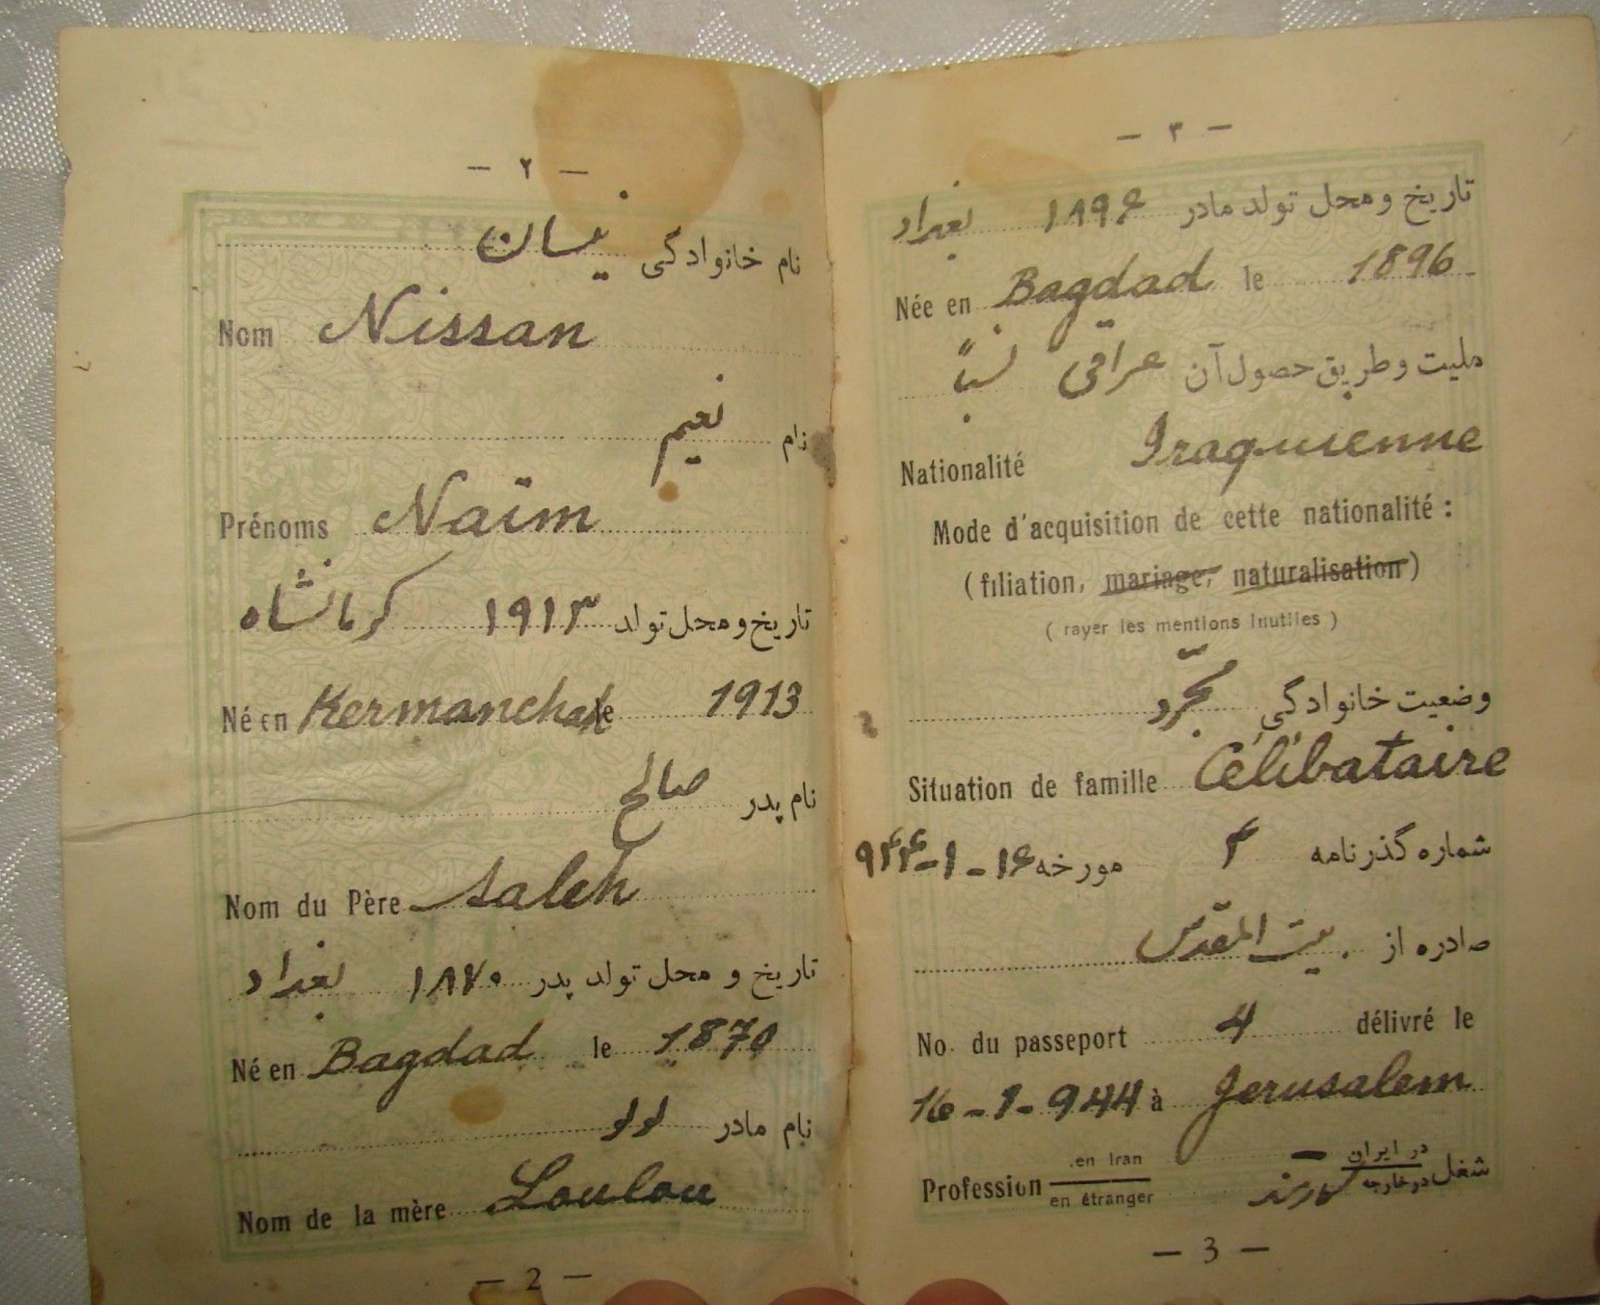 — ٢ —
نام خانوادگی نیسان
Nom Nissan
نام نعیم
Prénoms Naïm
تاریخ و محل تولد ١٩١٣ کرمانشاه
Né en Kermanchah le 1913
نام پدر صالح
Nom du Père Saleh
تاریخ و محل تولد پدر ١٨٧٠ بغداد
Né en Bagdad le 1870
نام مادر
Nom de la mère Loulou
— 2 —
— ٣ —
تاریخ و محل تولد مادر ١٨٩۶ بغداد
Née en Bagdad le 1896
ملیت و طریق حصول آن عراقی نسباً
Nationalité Iraquienne
Mode d'acquisition de cette nationalité :
(filiation, mariage, naturalisation)
( rayer les mentions inutiles )
وضعیت خانوادگی مجرّد
Situation de famille Célibataire
شماره گذرنامه ۴ مورخه ١۶-١-٩۴۴
صادره از بیت المقدس
No. du passeport 4 délivré le
16-1-944 à Jerusalem
Profession en Iran — در ایران شغل
en étranger کارمند در خارجه
— 3 —